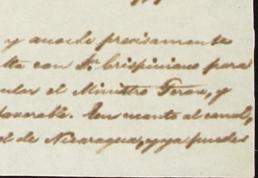 y anoche precisamente
con Dn. Crispiniano para
el Ministro Teran, y
favorable. En cuanto al canal,
de Nicaragua, ya puedes